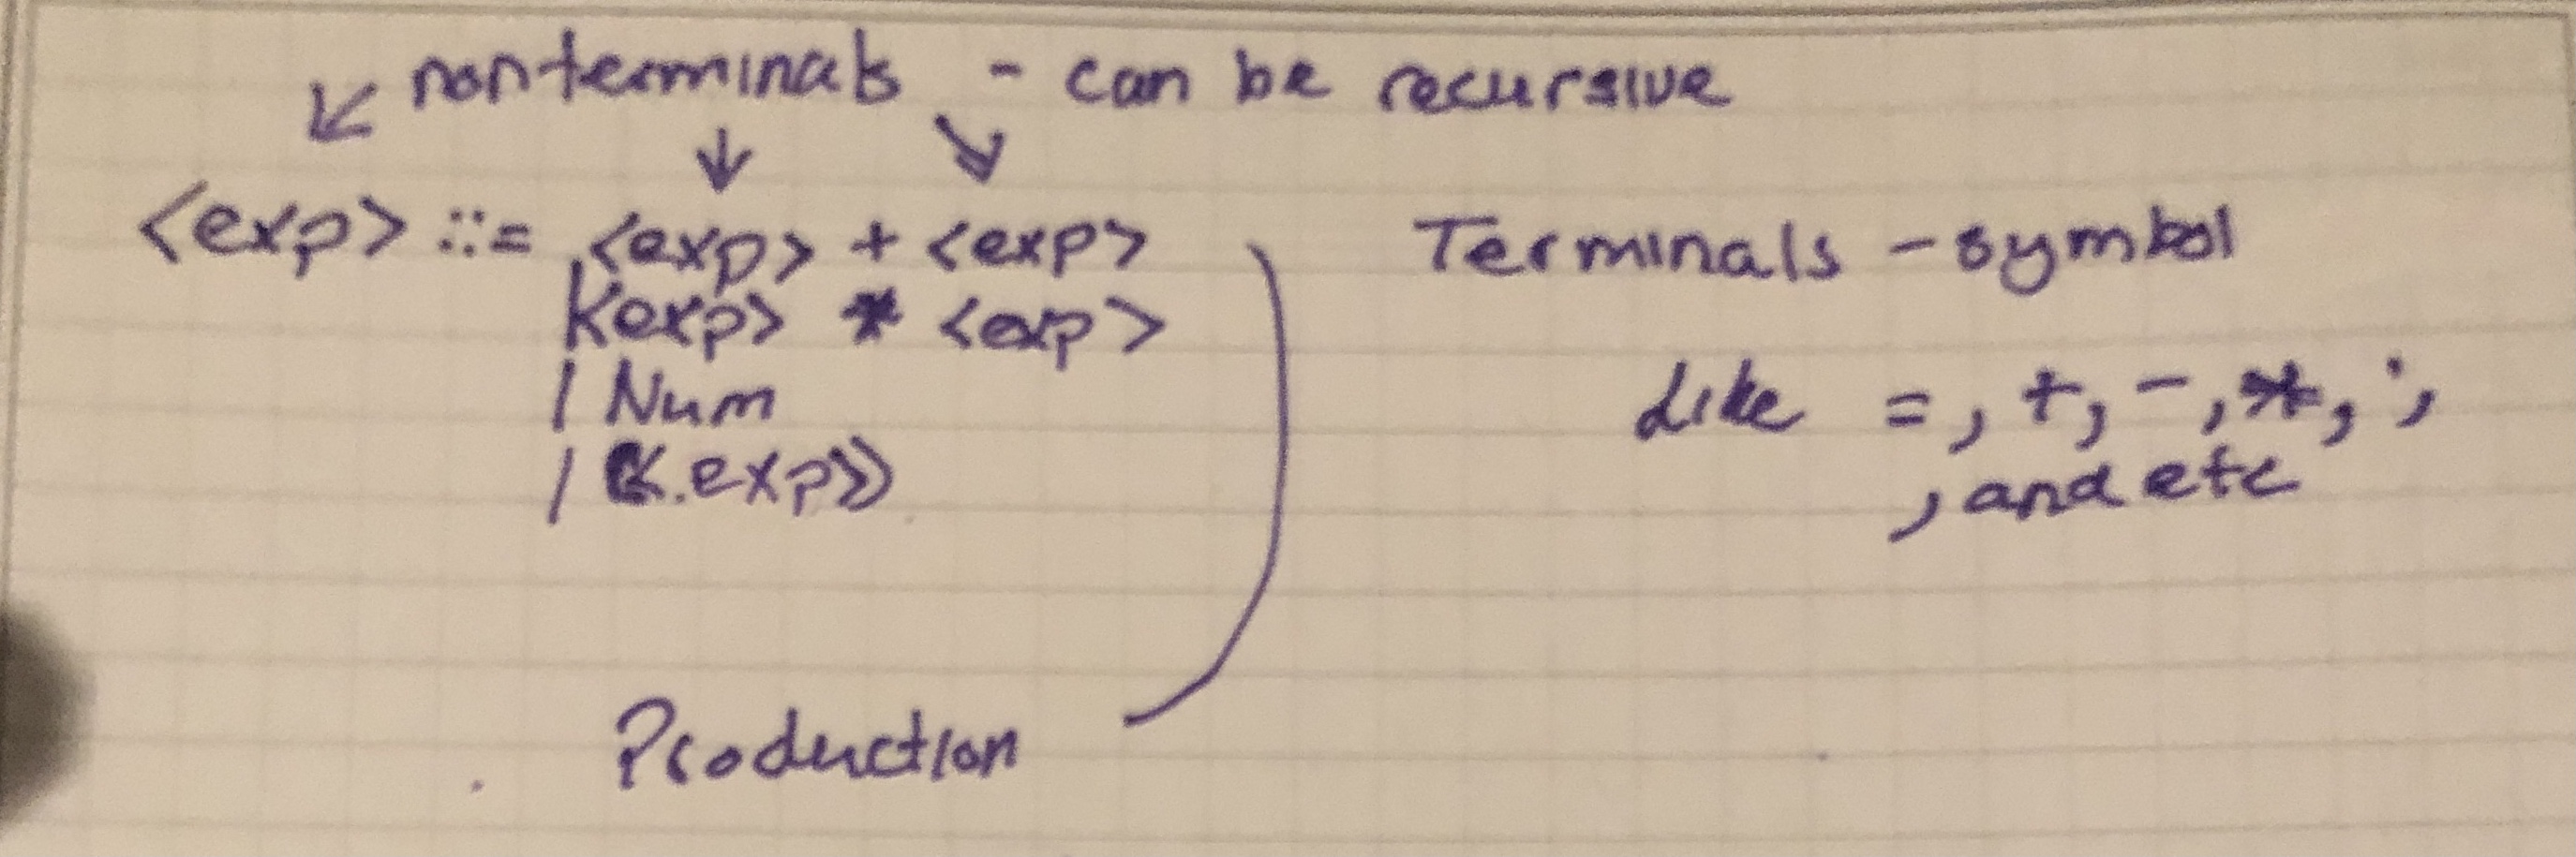 nonterminals - can be recursive
<exp> ::= <exp> + <exp>
|<exp> * <exp>
| Num
| (<exp>)
Production
Terminals - symbol
Like =, +, -, *, ;,
, and etc